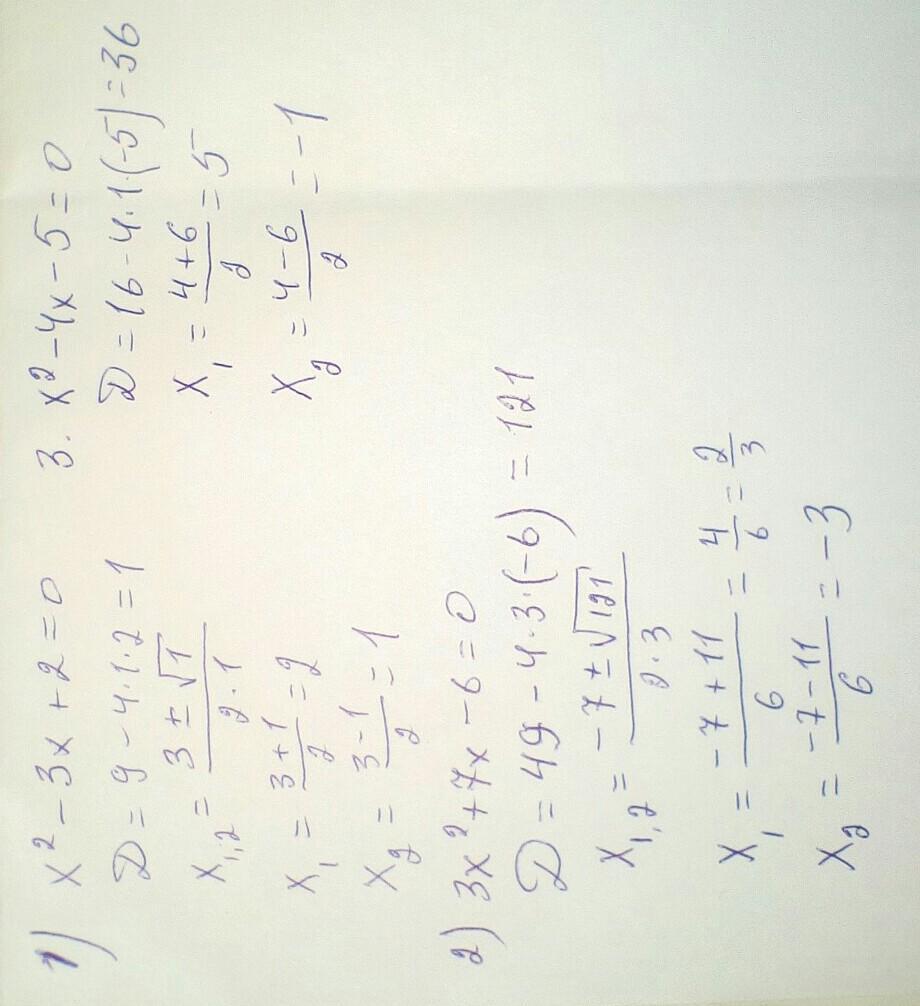 1) x² - 3x + 2 = 0
D = 9 - 4·1·2 = 1
x₁,₂ = (3 ± √1)/(2·1)
x₁ = (3+1)/2 = 2
x₂ = (3-1)/2 = 1
2) 3x² + 7x - 6 = 0
D = 49 - 4·3·(-6) = 121
x₁,₂ = (-7 ± √121)/(2·3)
x₁ = (-7+11)/6 = 4/6 = 2/3
x₂ = (-7-11)/6 = -3
3. x² - 4x - 5 = 0
D = 16 - 4·1·(-5) = 36
x₁ = (4+6)/2 = 5
x₂ = (4-6)/2 = -1